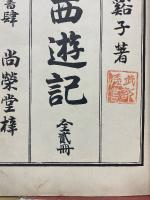 子著
西遊記
全貳冊
書肆 尚榮堂梓